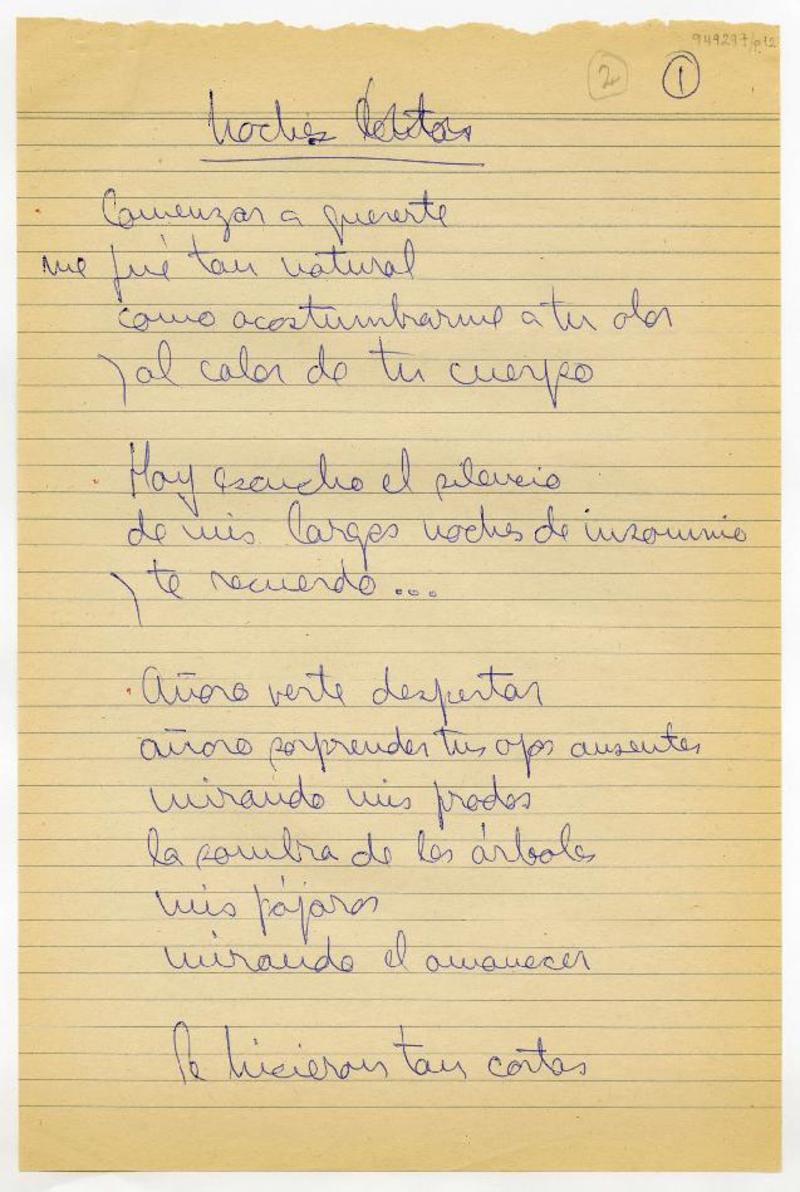 949297/p.12
2 1
Noches
Comenzar a quererte
me fué tan natural
como acostumbrarme a tu olor
y al calor de tu cuerpo
Hoy escucho el silencio
de mis largas noches de insomnio
y te recuerdo...
Añoro verte despertar
añoro sorprender tus ojos ausentes
mirando mis prados
la sombra de los árboles
mis pájaros
mirando el amanecer
Se hicieron tan cortas